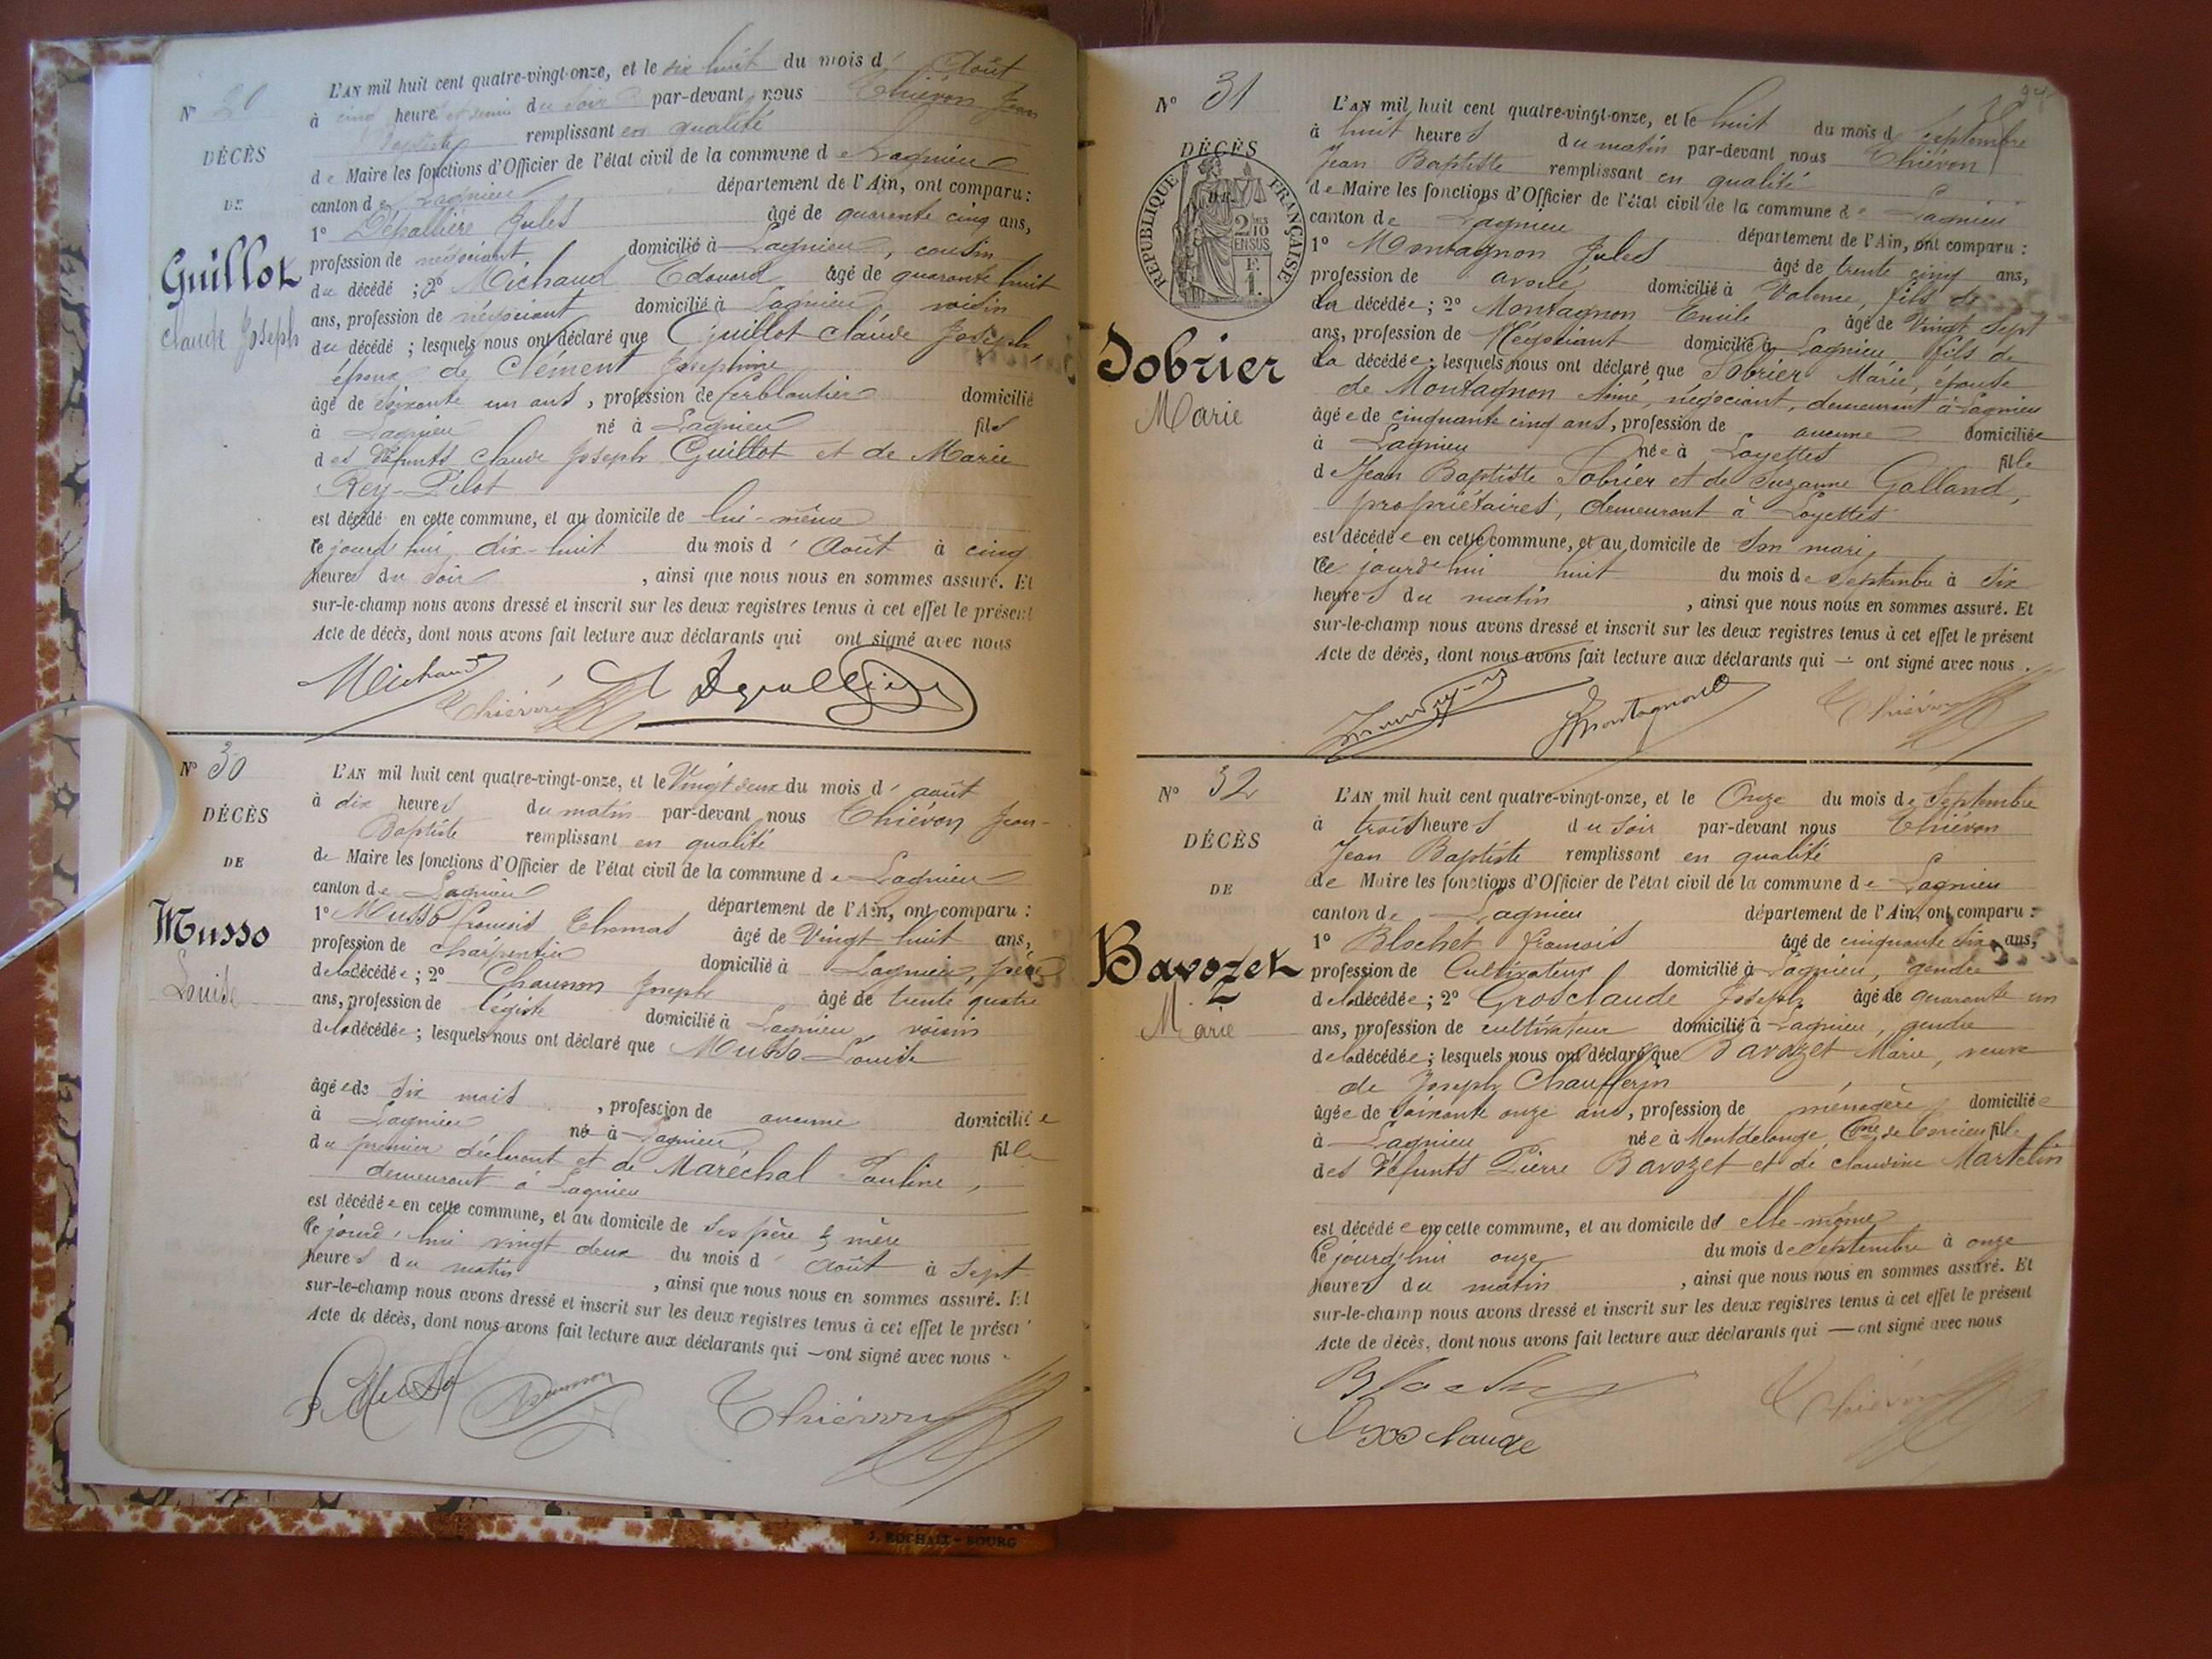 DÉCÈS
DE
Guillot
Claude Joseph
L'AN mil huit cent quatre-vingt-onze, et le dix huit du mois d' Août
à cinq heures et demi du soir par-devant nous Thiévon Jean
Baptiste remplissant en qualité
de Maire les fonctions d'Officier de l'état civil de la commune de Lagnieu
canton de Lagnieu département de l'Ain, ont comparu :
1° Dépallière Jules âgé de quarante cinq ans,
profession de négociant domicilié à Lagnieu, cousin
du décédé ; 2° Michaud Edouard âgé de quarante huit
ans, profession de négociant domicilié à Lagnieu, voisin
du décédé ; lesquels nous ont déclaré que Guillot Claude Joseph,
époux de Clément Joséphine
âgé de soixante un ans, profession de ferblantier domicilié
à Lagnieu né à Lagnieu fils
des défunts Claude Joseph Guillot et de Marie
Rey-Pilot
est décédé en cette commune, et au domicile de lui-même
ce jourd'hui dix-huit du mois d' Août à cinq
heures du soir, ainsi que nous nous en sommes assuré. Et
sur-le-champ nous avons dressé et inscrit sur les deux registres tenus à cet effet le présent
Acte de décès, dont nous avons fait lecture aux déclarants qui ont signé avec nous
Michaud Thiévon
N° 30
DÉCÈS
DE
Musso
Louise
L'AN mil huit cent quatre-vingt-onze, et le Vingt deux du mois d' août
à dix heures du matin par-devant nous Thiévon Jean-
Baptiste remplissant en qualité
de Maire les fonctions d'Officier de l'état civil de la commune de Lagnieu
canton de Lagnieu département de l'Ain, ont comparu :
1° Musso François Thomas âgé de Vingt huit ans,
profession de charpentier domicilié à Lagnieu, père
de la décédée ; 2° Chaunon Joseph âgé de trente quatre
ans, profession de légiste domicilié à Lagnieu, voisin
de la décédée ; lesquels nous ont déclaré que Musso Louise
âgée de six mois, profession de aucune domiciliée
à Lagnieu né à Lagnieu fille
du premier déclarant et de Maréchal Pauline,
demeurant à Lagnieu
est décédée en cette commune, et au domicile de ses père & mère
ce jourd'hui vingt deux du mois d' Août à sept
heures du matin, ainsi que nous nous en sommes assuré. Et
sur-le-champ nous avons dressé et inscrit sur les deux registres tenus à cet effet le présent
Acte de décès, dont nous avons fait lecture aux déclarants qui — ont signé avec nous
Musso Chaunon Thiévon
J. ROCHAIX - BOURG
N° 31
DÉCÈS
RÉPUBLIQUE FRANÇAISE
2/10 EN SUS
F. 1.
Sobrier
Marie
L'AN mil huit cent quatre-vingt-onze, et le huit du mois de Septembre
à huit heures du matin par-devant nous Thiévon
Jean Baptiste remplissant en qualité
de Maire les fonctions d'Officier de l'état civil de la commune de Lagnieu
canton de Lagnieu département de l'Ain, ont comparu :
1° Montagnon Jules âgé de trente cinq ans,
profession de avoué domicilié à Valence, fils de
la décédée ; 2° Montagnon Emile âgé de Vingt sept
ans, profession de Négociant domicilié à Lagnieu, fils de
la décédée ; lesquels nous ont déclaré que Sobrier Marie, épouse
de Montagnon Aimé, négociant, demeurant à Lagnieu
âgée de cinquante cinq ans, profession de aucune domiciliée
à Lagnieu née à Loyettes fille
de Jean Baptiste Sobrier et de Suzanne Galland,
propriétaires, demeurant à Loyettes
est décédée en cette commune, et au domicile de son mari,
ce jourd'hui huit du mois de Septembre à six
heures du matin, ainsi que nous nous en sommes assuré. Et
sur-le-champ nous avons dressé et inscrit sur les deux registres tenus à cet effet le présent
Acte de décès, dont nous avons fait lecture aux déclarants qui — ont signé avec nous.
Montagnon Thiévon
N° 32
DÉCÈS
DE
Bavozet
Marie
L'AN mil huit cent quatre-vingt-onze, et le Onze du mois de Septembre
à trois heures du soir par-devant nous Thiévon
Jean Baptiste remplissant en qualité
de Maire les fonctions d'Officier de l'état civil de la commune de Lagnieu
canton de Lagnieu département de l'Ain, ont comparu :
1° Blochet François âgé de cinquante six ans,
profession de Cultivateur domicilié à Lagnieu, gendre
de la décédée ; 2° Grosclaude Joseph âgé de quarante un
ans, profession de cultivateur domicilié à Lagnieu, gendre
de la décédée ; lesquels nous ont déclaré que Bavozet Marie, veuve
de Joseph Chaufferin
âgée de soixante onze ans, profession de ménagère domiciliée
à Lagnieu née à Montdelonge Cne de Torcieu fille
des défunts Pierre Bavozet et de Claudine Martelin
est décédée en cette commune, et au domicile de elle-même
ce jourd'hui onze du mois de Septembre à onze
heures du matin, ainsi que nous nous en sommes assuré. Et
sur-le-champ nous avons dressé et inscrit sur les deux registres tenus à cet effet le présent
Acte de décès, dont nous avons fait lecture aux déclarants qui — ont signé avec nous
Thiévon
Grosclaude